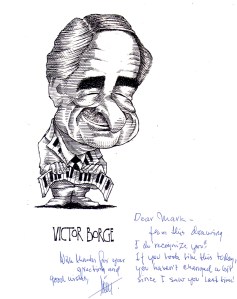 VICTOR BORGE
With thanks for your
greeting and
good wishes
Dear Mark –
from this drawing
I do recognize you!
If you look like this today,
you haven't changed a bit
since I saw you last time!